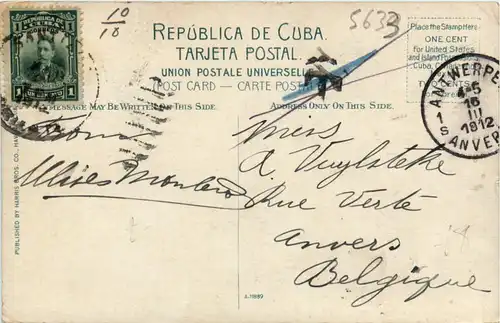 10/10
5633
REPÚBLICA DE CUBA.
TARJETA POSTAL.
UNION POSTALE UNIVERSELLE
(POST CARD — CARTE POSTALE
MESSAGE MAY BE WRITTEN ON THIS SIDE.
ADDRESS ONLY ON THIS SIDE.
Place the Stamp Here
ONE CENT
for United States
and Island
Cuba, Canada
ANTWERPEN
15
III
1912
1 S
ANVERS
REPUBLICA DE CUBA
1
1
From
Ulises Montero
Miss
A. Vuylsteke
Rue Verte
Anvers
Belgique
PUBLISHED BY HARRIS BROS. CO., HA